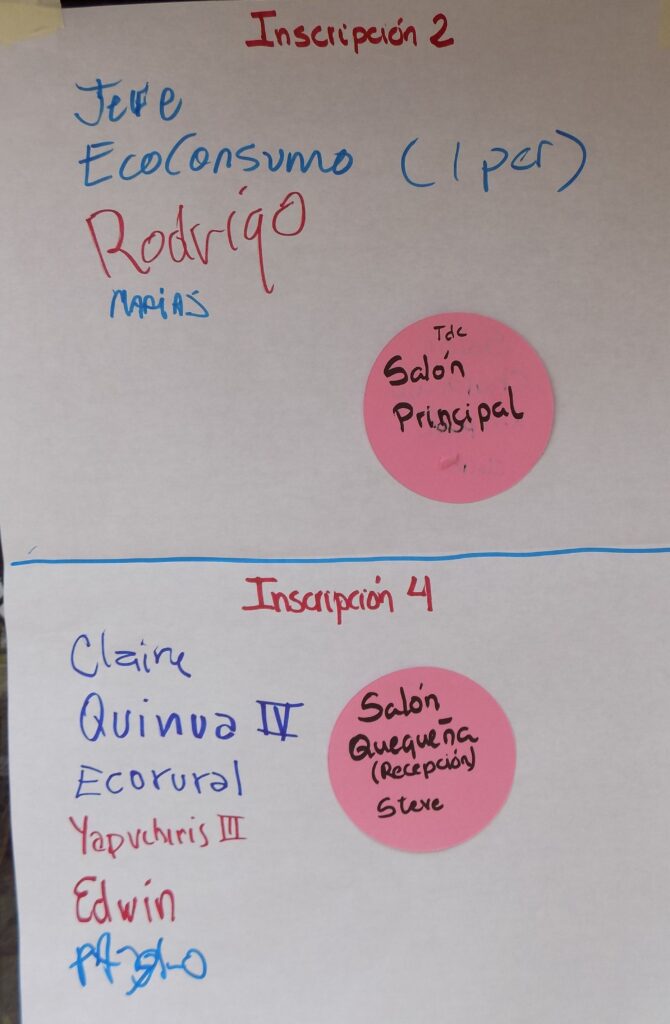 Inscripción 2
Jere
EcoConsumo (1 per)
Rodrigo
MARIAS
Tdc
Salón
Principal
Inscripción 4
Claire
Quinua IV
Ecorural
Yapuchiris III
Edwin
Salón
Quequeña
(Recepción)
Steve